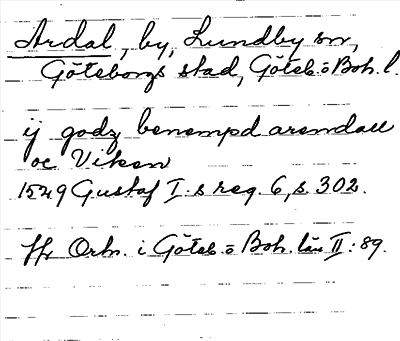 Ardal, by, Lundby sn,
Göteborgs stad, Göteb. o Boh. l.
ij godz benempd arendall
oc Viken
1549 Gustaf I:s reg. 6, s. 302.
Jfr Ortn. i Göteb. o Boh. län II: 89.